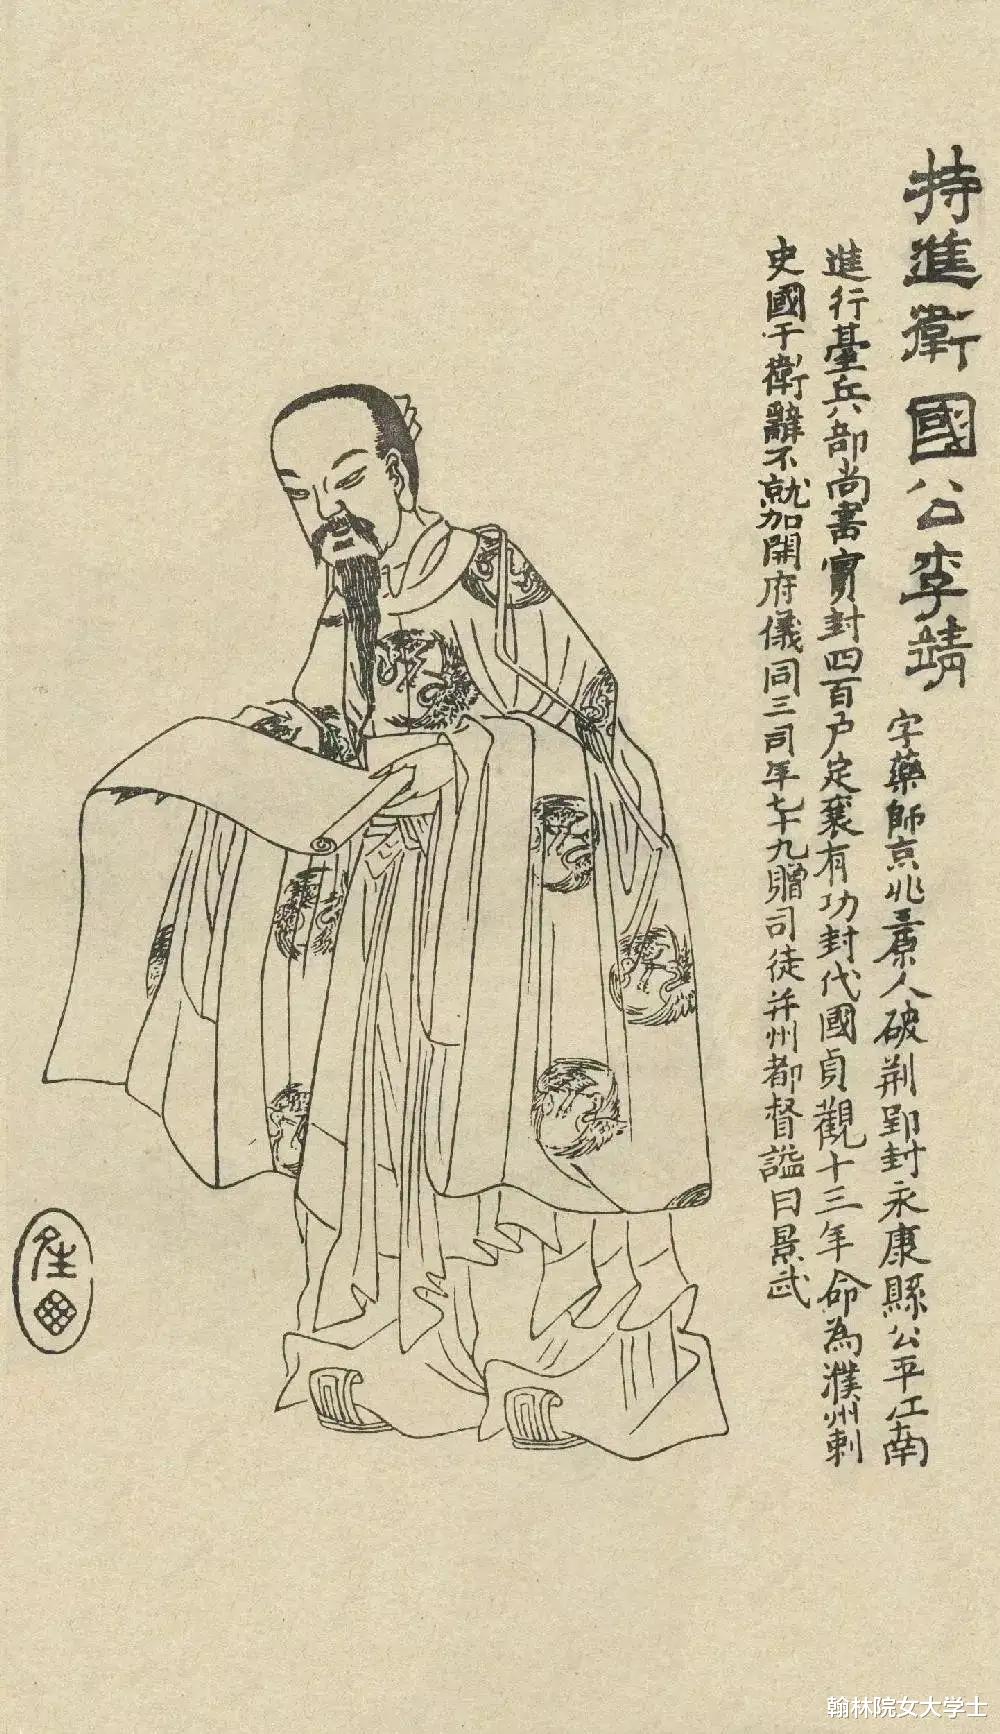 持進衛國公李靖
字藥師京兆三原人破荆郢封永康縣公平江南
進行臺兵部尚書實封四百户定襄有功封代國貞觀十三年命為濮州刺
史國于衛辭不就加開府儀同三司年七十九贈司徒并州都督謚曰景武
翰林院女大学士